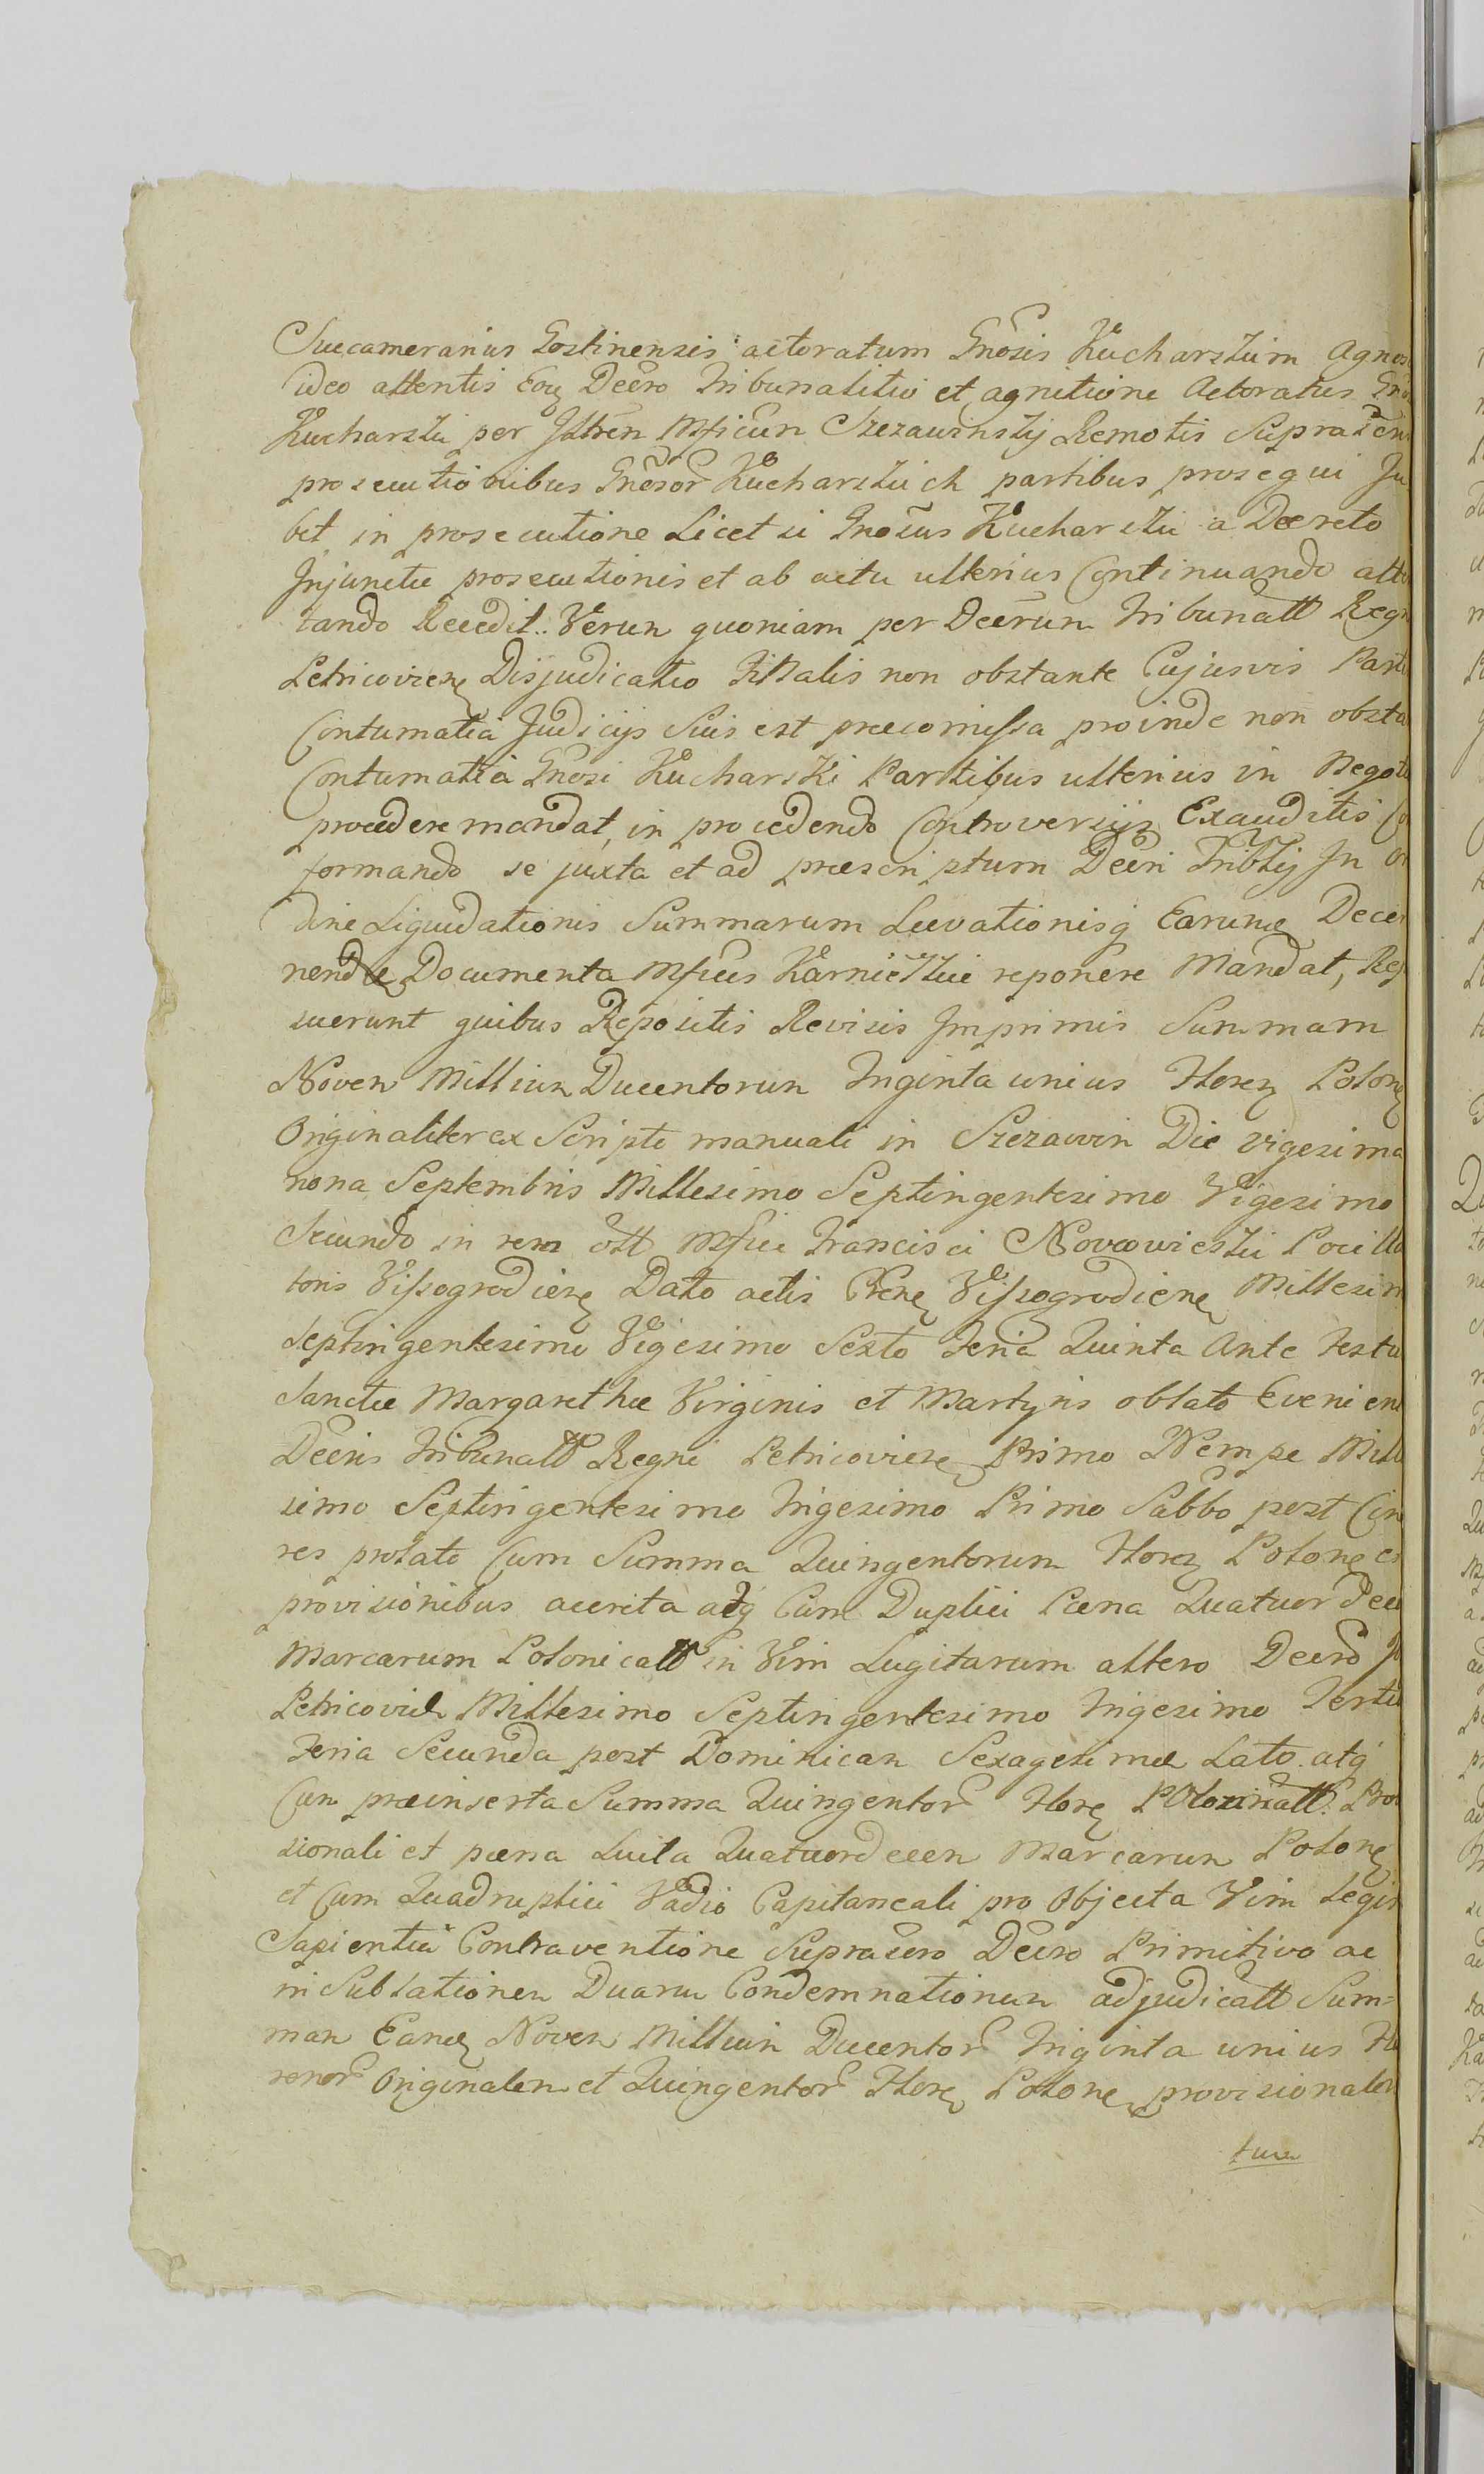 Succamerarius Gostinensis actoratum Gnosis Kucharskim Agnos
ideo attentis Eoq Decro Tribunalitio et agnitione Actoratus Gno
Kucharski per Illren Mficun Szczawinskij Remotis Suprascri
prosecutionibus Gnosor Kucharskich partibus prosequi Ju
bet, in prosecutione Licet si Gnosus Kucharski a Decreto
Injunctæ prosecutionis et ab actu ulterius Continuando atte
tando Recedit.. Verun quoniam per Decrun Tribunall Regn
Petricoviens Disjudicatio Titalis non obstante Cujusvis Parti
Contumatia Judicijs Suis est præcomissa proinde non obsta
Contumatia Gnosi Kucharski Partibus ulterius in Negoti
procedere mandat, in procedendo Controversijs Exauditis Co
formando se juxta et ad præscriptum Decri Triblij In or
dine Liquidationis Summarum Levationisq Earunq Decer
nendæ Documenta Mficus Karnicki reponere Mandat, Rep
suerunt quibus Repositis Revisis Imprimis Summam
Noven Milliun Ducentorun Triginta unius Floren Polon
Originaliter ex Scripto manuali in Szczawin Die vigesima
nona Septembris Millesimo Septingentesimo Vigesimo
Secundo in rem olt Mfici Francisci Nowowieski Pocilla
toris Vissogrodiens Dato actis Crens Vissogrodiens Millesim
Septingentesimo Vigesimo Sexto Feria Quinta Ante Festu
Sanctæ Margarethæ Virginis et Martyris oblato Evenien
Decris Tribunall Regni Petricoviens Primo Nempe Mille
simo Septingentesimo Trigesimo Primo Sabbo post Cin
res prolato Cum Summa Quingentorum Floren Polon ex
provisionibus accreta atq Cum Duplici Pæna Quatuor Dece
Marcarum Polonicall in Vim Lugitarum altero Decro
Petricoviens Millesimo Septingentesimo Trigesimo Tertio
Feria Secunda post Dominican Sexagesimæ Lato. atq
Cun præinserta Summa Quingentor Floren Polonicall. Provi
sionali et pæna Luita Quatuordecen Marcarun Polon
et Cum Quadruplici Vadio Capitaneali pro Objecta Vim Legis
Sapientia Contraventione Suprascro Decro Primitivo ac
in Sublationen Duarun Condemnationun adjudicall Sum=
man Eanq Noven Milliun Ducentor Triginta unius Flo
renor Originalen et Quingentor Floren Polon provisionalen